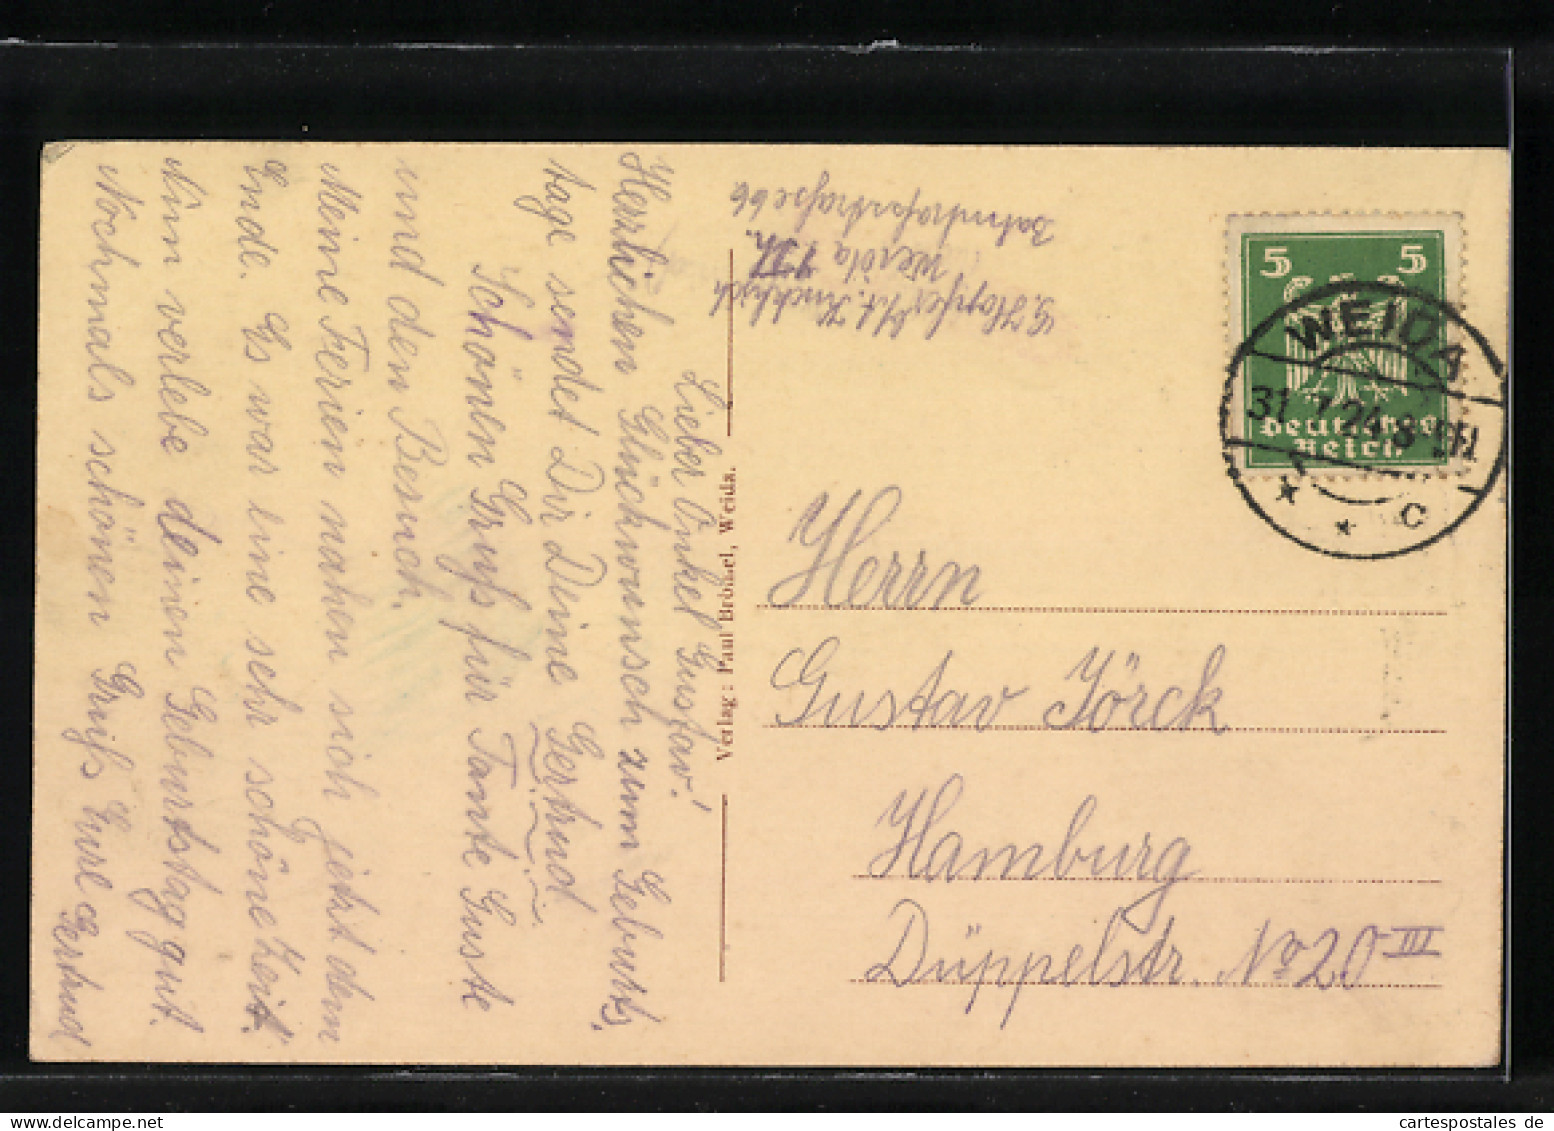 Lieber Onkel Gustav!
Herzlichen Glückwunsch zum Geburts,
tage sendet Dir Deine Gertrud
Schönen Gruß für Tante Guste
und den Besuch.
Meine Ferien nahen sich jetzt dem
Ende. Es war eine sehr schöne Zeit.
Nun verlebe deinen Geburtstag gut.
Nochmals schönen Gruß Eure Gertrud
Verlag: Paul Brömel, Weida.
Weida i Th.
Bahnhofsstraße 66
5 5
Deutsches
Reich.
WEIDA
31 7.24.8-9V
* * C
Herrn
Gustav Jörck
Hamburg
Düppelstr. No 20 III
cartespostales de